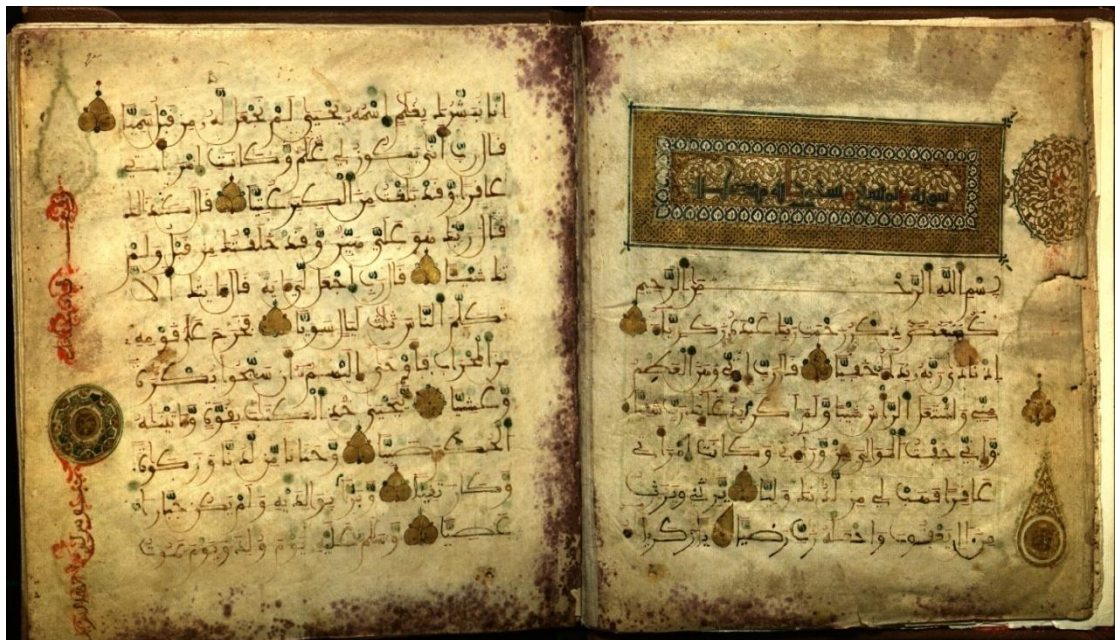 سورة
بسم الله الرحمن الرحيم
كهيعص ذكر رحمت ربك عبده زكرياء
اذ نادى ربه نداء خفيا قال رب اني وهن العظم
مني واشتعل الراس شيبا ولم اكن بدعائك رب شقيا
واني خفت الموالي من وراءي وكانت امراتي
عاقرا فهب لي من لدنك وليا يرثني ويرث
من ال يعقوب واجعله رب رضيا يزكريا
انا نبشرك بغلم اسمه يحيى لم نجعل له من قبل سميا
قال رب انى يكون لي غلم وكانت امراتي
عاقرا وقد بلغت من الكبر عتيا قال كذلك
قال ربك هو علي هين وقد خلقتك من قبل ولم
تك شيئا قال رب اجعل لي اية قال ايتك الا
تكلم الناس ثلث ليال سويا فخرج على قومه
من المحراب فاوحى اليهم ان سبحوا بكرة
وعشيا ييحيى خذ الكتب بقوة واتينه
الحكم صبيا وحنانا من لدنا وزكوة
وكان تقيا وبرا بولديه ولم يكن جبارا
عصيا وسلم عليه يوم ولد ويوم يموت